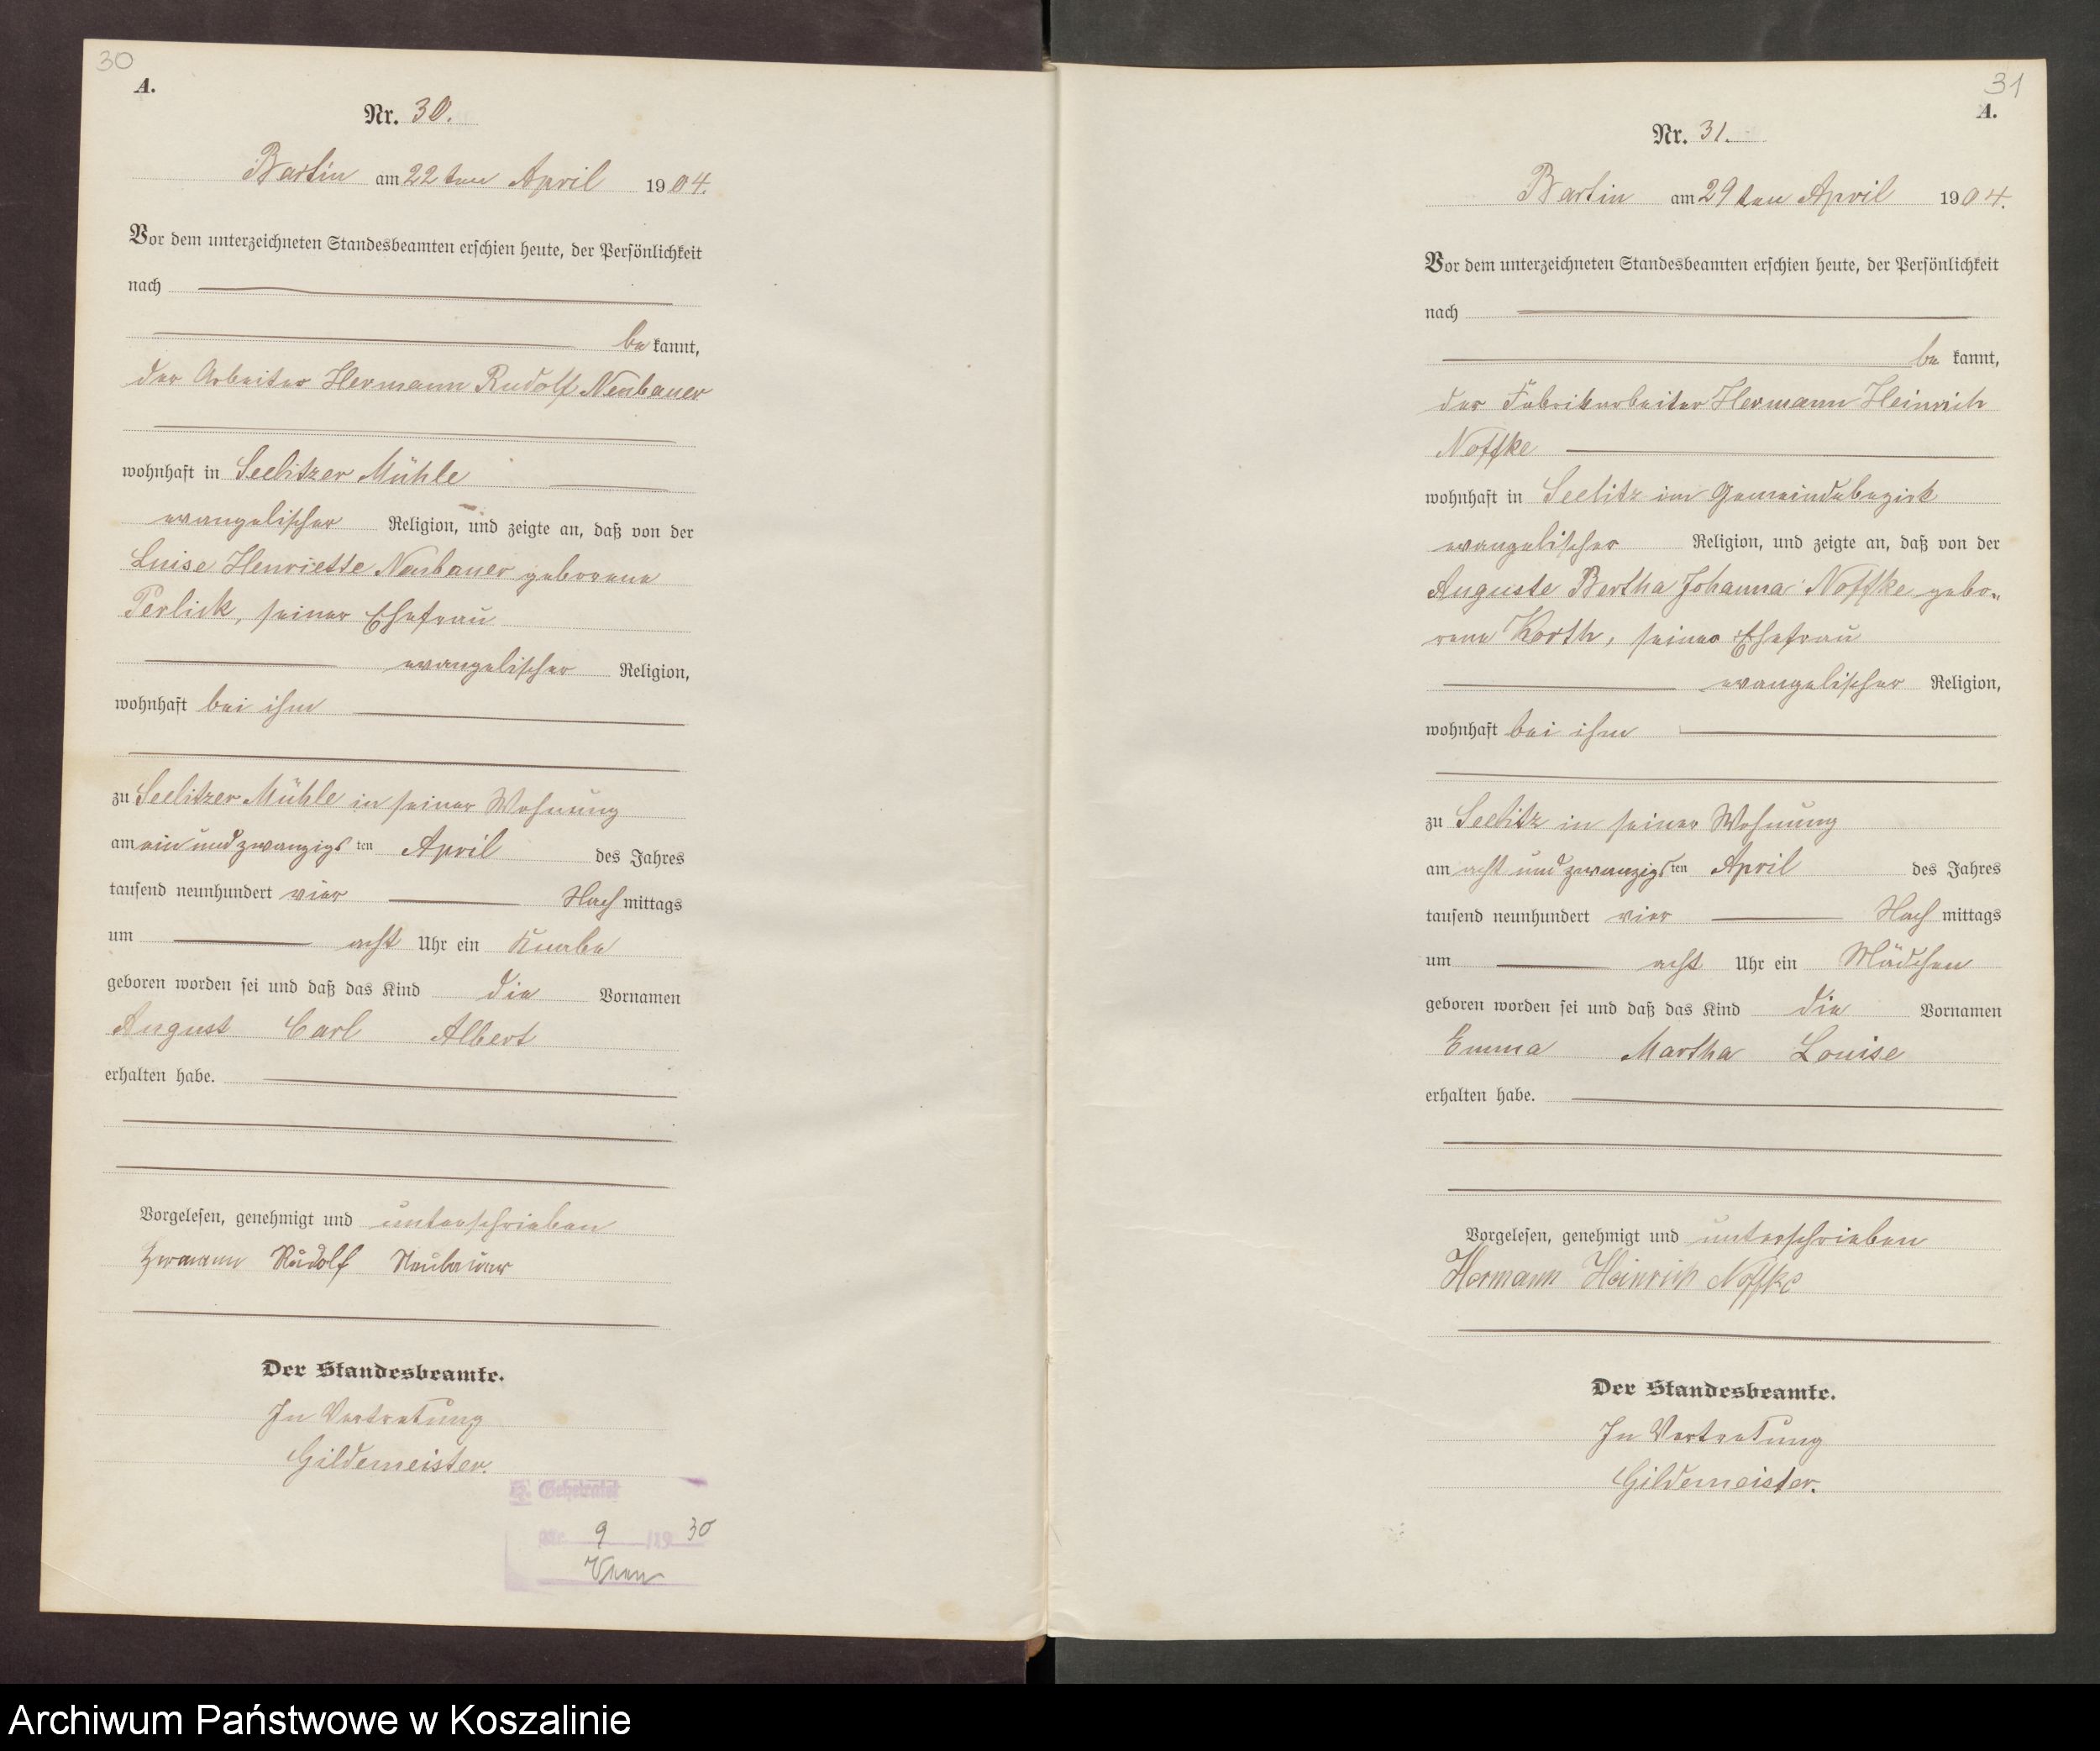 30
A.
Nr. 30.
Bartin am 22ten April 1904.
Vor dem unterzeichneten Standesbeamten erschien heute, der Persönlichkeit
nach
be kannt,
der Arbeiter Hermann Rudolf Neubauer
wohnhaft in Seelitzer Mühle
evangelischer Religion, und zeigte an, daß von der
Luise Henriette Neubauer geborene
Perlick, seiner Ehefrau
evangelischer Religion,
wohnhaft bei ihm
zu Seelitzer Mühle in seiner Wohnung
am ein und zwanzigs ten April des Jahres
tausend neunhundert vier Nach mittags
um acht Uhr ein Knabe
geboren worden sei und daß das Kind die Vornamen
August Carl Albert
erhalten habe.
Vorgelesen, genehmigt und unterschrieben
Hermann Rudolf Neubauer
Der Standesbeamte.
In Vertretung
Gildemeister.
9 /19 30
31
A.
Nr. 31.
Bartin am 29ten April 1904.
Vor dem unterzeichneten Standesbeamten erschien heute, der Persönlichkeit
nach
be kannt,
der Fabrikarbeiter Hermann Heinrich
Noffke
wohnhaft in Seelitz im Gemeindebezirk
evangelischer Religion, und zeigte an, daß von der
Auguste Bertha Johanna Noffke gebo-
rene Korth, seiner Ehefrau
evangelischer Religion,
wohnhaft bei ihm
zu Seelitz in seiner Wohnung
am acht und zwanzigs ten April des Jahres
tausend neunhundert vier Nach mittags
um acht Uhr ein Mädchen
geboren worden sei und daß das Kind die Vornamen
Emma Martha Louise
erhalten habe.
Vorgelesen, genehmigt und unterschrieben
Hermann Heinrich Noffke
Der Standesbeamte.
In Vertretung
Gildemeister.
Archiwum Państwowe w Koszalinie